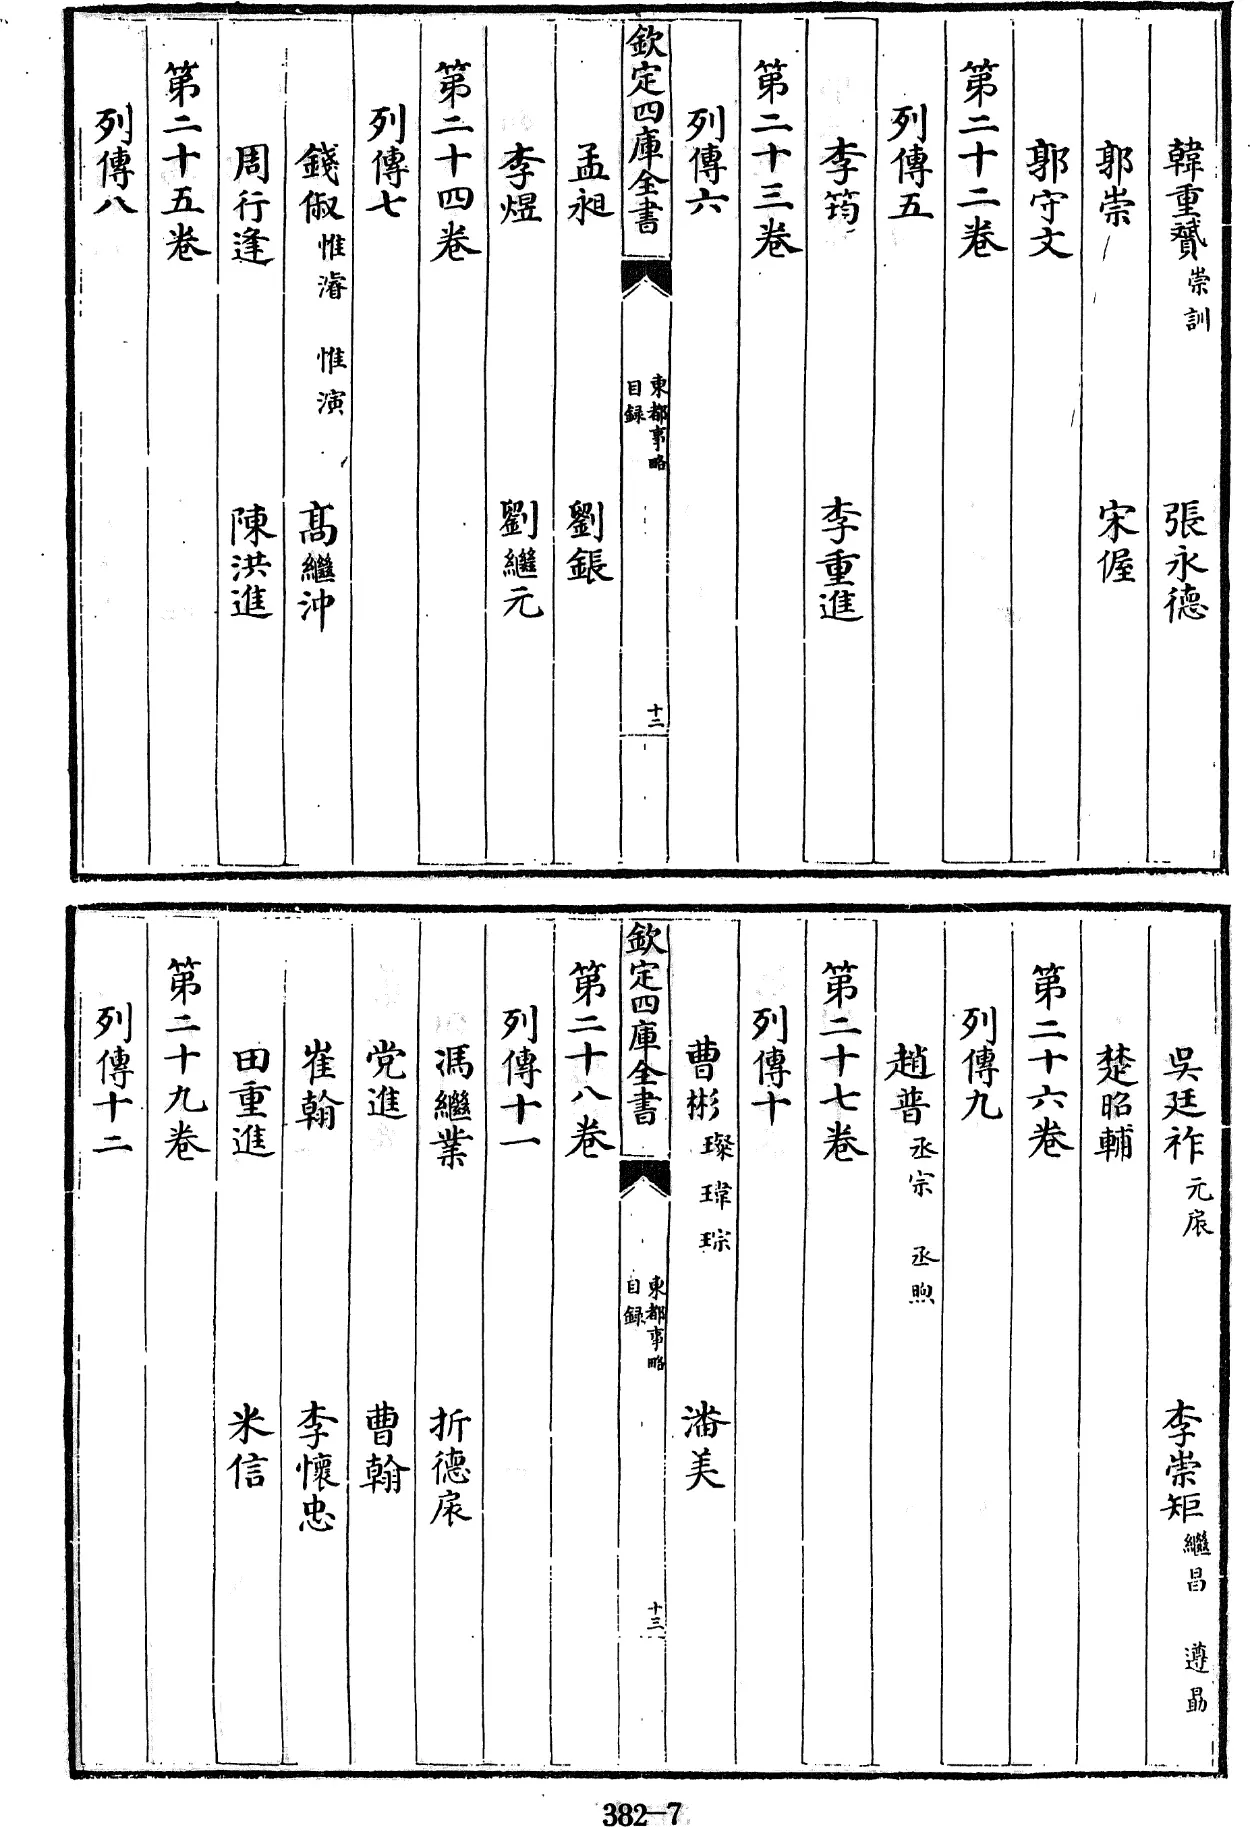 韓重贇崇訓 張永德
郭崇 宋偓
郭守文
第二十二卷
列傳五
李筠 李重進
第二十三卷
列傳六
欽定四庫全書 東都事略目録 十二
孟昶 劉鋹
李煜 劉繼元
第二十四卷
列傳七
錢俶惟濬 惟演 髙繼沖
周行逢 陳洪進
第二十五卷
列傳八
吳廷祚元扆 李崇矩繼昌 遵勗
楚昭輔
第二十六卷
列傳九
趙普丞宗 丞煦
第二十七卷
列傳十
曹彬璨瑋琮 潘美
欽定四庫全書 東都事略目録 十三
第二十八卷
列傳十一
馮繼業 折德扆
党進 曹翰
崔翰 李懷忠
田重進 米信
第二十九卷
列傳十二
382-7